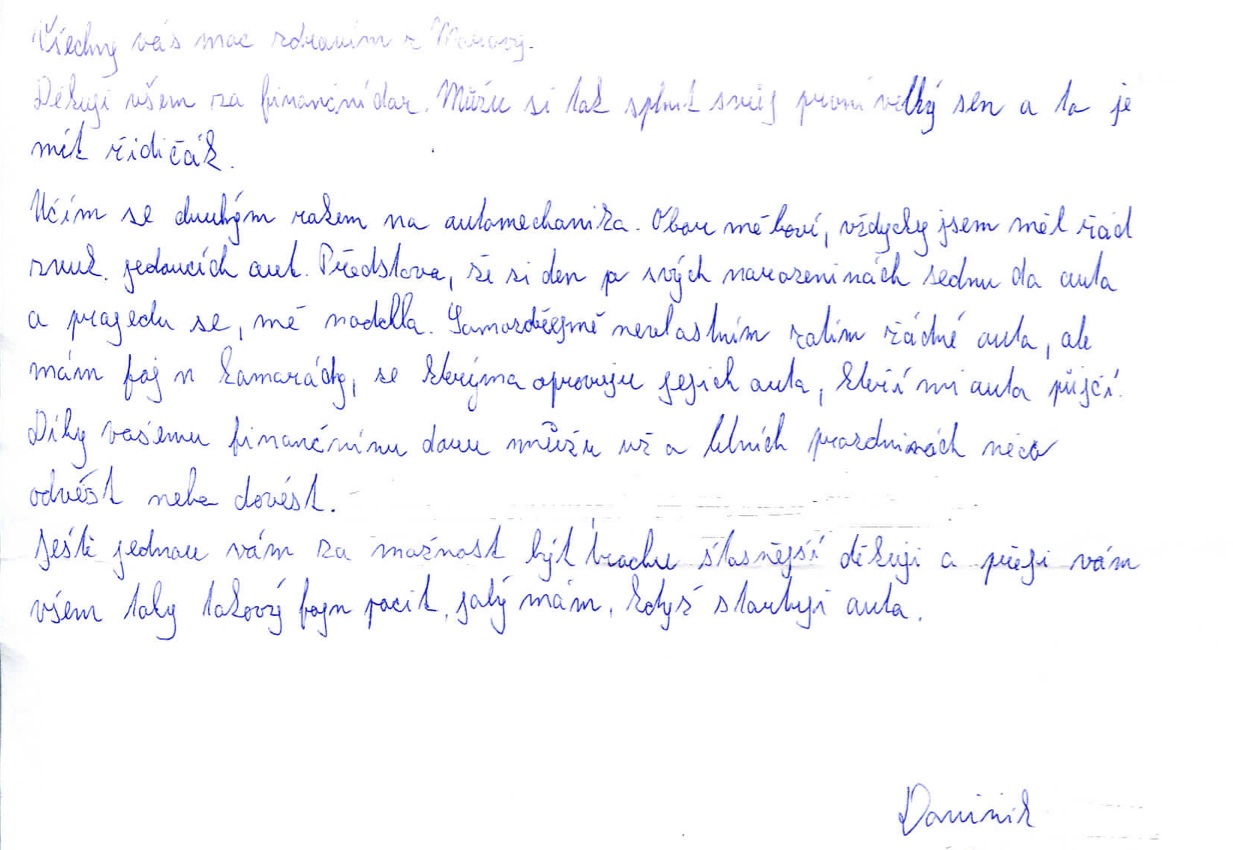 Všechny vás moc zdravím z Moravy.
Děkuji všem za finanční dar. Můžu si tak splnit svůj první velký sen a to je
mít řidičák.
Učím se druhým rokem na automechanika. Obor mě baví, vždycky jsem měl rád
zvuk jedoucích aut. Představa, že si den po svých narozeninách sednu do auta
a projedu se, mě nadchla. Samozdřejmě nevlastním zatím žádné auto, ale
mám fajn kamarády, se kterýma opravuju jejich auta, kteří mi auto půjčí.
Díky vašemu finančnímu daru můžu už o letních prazdninách něco
odvést nebo dovést.
Ještě jednou vám za možnost být trochu šťasnější děkuji a přeji vám
všem taky takový fajn pocit, jaký mám, když startuji auto.
Dominik